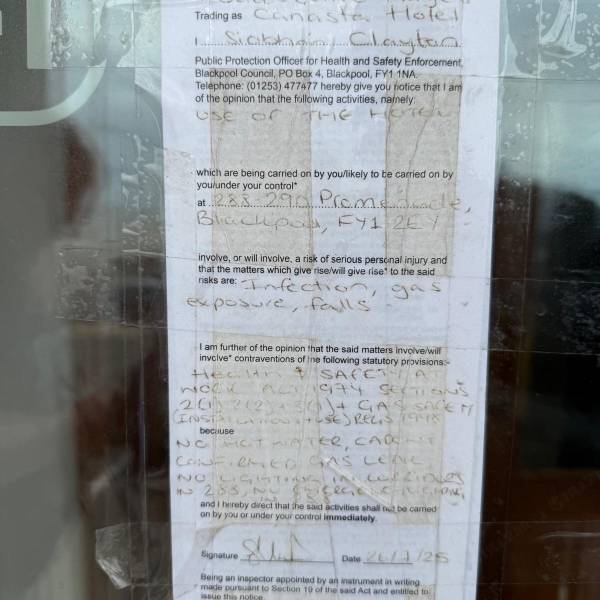 Trading as Canasta Hotel
I Siobhan Clayton
Public Protection Officer for Health and Safety Enforcement,
Blackpool Council, PO Box 4, Blackpool, FY1 1NA.
Telephone: (01253) 477477 hereby give you notice that I am
of the opinion that the following activities, namely:
USE OF THE HOTEL
which are being carried on by you/likely to be carried on by
you/under your control*
at 288-290 Promenade,
Blackpool, FY1 2EY
involve, or will involve, a risk of serious personal injury and
that the matters which give rise/will give rise* to the said
risks are: Infection, gas
exposure, falls
I am further of the opinion that the said matters involve/will
involve* contraventions of the following statutory provisions:-
HEALTH & SAFETY AT
WORK ACT 1974 SECTIONS
2(1) 2(2) + 3(1) + GAS SAFETY
(INSTALLATION + USE) REGS 1998
because
NO HOT WATER,
CONFIRMED GAS LEAK
NO LIGHTING IN CORRIDORS
IN 288, NO
and I hereby direct that the said activities shall not be carried
on by you or under your control immediately.
Signature Date 26/7/25
Being an inspector appointed by an instrument in writing
made pursuant to Section 19 of the said Act and entitled to
issue this notice